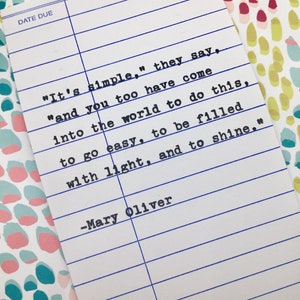 DATE DUE
"It's simple," they say,
"and you too have come
into the world to do this,
to go easy, to be filled
with light, and to shine."
-Mary Oliver